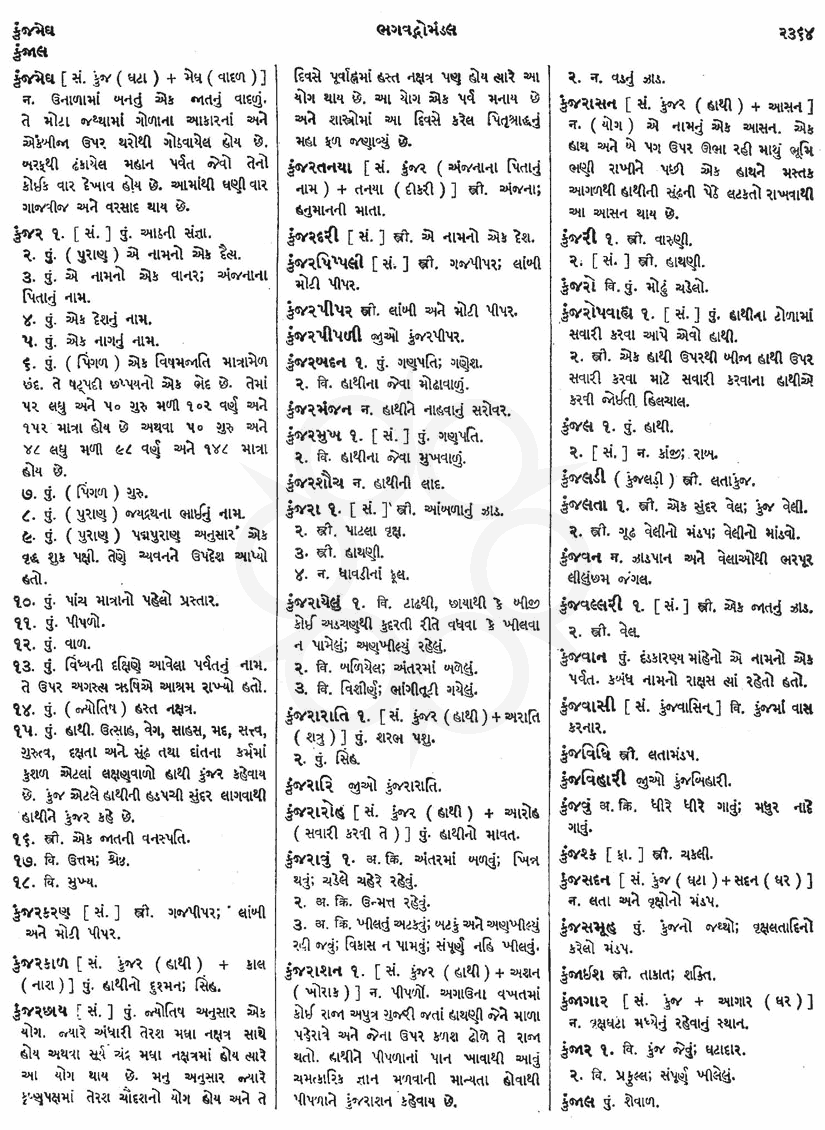 કુંજમેઘ
ભગવદ્ગોમંડલ
૨૩૬૪
કુંજાલ
કુંજમેઘ [ સં. કુંજ ( ઘટા ) + મેઘ ( વાદળ ) ]
ન. ઉનાળામાં બનતું એક જાતનું વાદળું.
તે મોટા જથ્થામાં ગોળાના આકારનાં અને
એકબીજા ઉપર થરોથી ગોઠવાયેલ હોય છે.
બરફથી ઢંકાયેલ મહાન પર્વત જેવો તેનો
કોઈક વાર દેખાવ હોય છે. આમાંથી ઘણી વાર
ગાજવીજ અને વરસાદ થાય છે.
કુંજર ૧. [ સં. ] પું. આઠની સંજ્ઞા.
૨. પું. ( પુરાણ ) એ નામનો એક દૈત્ય.
૩. પું. એ નામનો એક વાનર; અંજનાના
પિતાનું નામ.
૪. પું. એક દેશનું નામ.
૫. પું. એક નાગનું નામ.
૬. પું. ( પિંગળ ) એક વિષમજાતિ માત્રામેળ
છંદ. તે ષટ્પદી છપ્પયનો એક ભેદ છે. તેમાં
૫૨ લઘુ અને ૫૦ ગુરુ મળી ૧૦૨ વર્ણ અને
૧૫૨ માત્રા હોય છે અથવા ૫૦ ગુરુ અને
૪૮ લઘુ મળી ૯૮ વર્ણ અને ૧૪૮ માત્રા
હોય છે.
૭. પું. ( પિંગળ ) ગુરુ.
૮. પું. ( પુરાણ ) જયદ્રથના ભાઈનું નામ.
૯. પું. ( પુરાણ ) પદ્મપુરાણ અનુસાર એક
વૃદ્ધ શુક પક્ષી. તેણે ચ્યવનને ઉપદેશ આપ્યો
હતો.
૧૦. પું. પાંચ માત્રાનો પહેલો પ્રસ્તાર.
૧૧. પું. પીપળો.
૧૨. પું. વાળ.
૧૩. પું. વિંધ્યની દક્ષિણે આવેલા પર્વતનું નામ.
તે ઉપર અગસ્ત્ય ઋષિએ આશ્રમ રાખ્યો હતો.
૧૪. પું. ( જ્યોતિષ ) હસ્ત નક્ષત્ર.
૧૫. પું. હાથી. ઉત્સાહ, વેગ, સાહસ, મદ, સત્ત્વ,
ગુરુત્વ, દક્ષતા અને સુંઢ તથા દાંતના કર્મમાં
કુશળ એટલાં લક્ષણવાળો હાથી કુંજર કહેવાય
છે. કુંજ એટલે હાથીની હડપચી સુંદર લાગવાથી
હાથીને કુંજર કહે છે.
૧૬. સ્ત્રી. એક જાતની વનસ્પતિ.
૧૭. વિ. ઉત્તમ; શ્રેષ્ઠ.
૧૮. વિ. મુખ્ય.
કુંજરકરણ [ સં. ] સ્ત્રી. ગજપીપર; લાંબી
અને મોટી પીપર.
કુંજરકાળ [ સં. કુંજર ( હાથી ) + કાલ
( નાશ ) ] પું. હાથીનો દુશ્મન; સિંહ.
કુંજરછાય [ સં. ] પું. જ્યોતિષ અનુસાર એક
યોગ. જ્યારે અંધારી તેરશ મઘા નક્ષત્ર સાથે
હોય અથવા સૂર્ય ચંદ્ર મઘા નક્ષત્રમાં હોય ત્યારે
આ યોગ થાય છે. મનુ અનુસાર જ્યારે
કૃષ્ણપક્ષમાં તેરશ ચૌદશનો યોગ હોય અને તે
દિવસે પૂર્વાહ્નમાં હસ્ત નક્ષત્ર પણ હોય ત્યારે આ
યોગ થાય છે. આ યોગ એક પર્વ મનાય છે
અને શાસ્ત્રોમાં આ દિવસે કરેલ પિતૃશ્રાદ્ધનું
મહા ફળ જણાવ્યું છે.
કુંજરતનયા [ સં. કુંજર ( અંજનાના પિતાનું
નામ ) + તનયા ( દીકરી ) ] સ્ત્રી. અંજના;
હનુમાનની માતા.
કુંજરદરી [ સં. ] સ્ત્રી. એ નામનો એક દેશ.
કુંજરપિપ્પલી [ સં. ] સ્ત્રી. ગજપીપર; લાંબી
મોટી પીપર.
કુંજરપીપર સ્ત્રી. લાંબી અને મોટી પીપર.
કુંજરપીપળી જુઓ કુંજરપીપર.
કુંજરબદન ૧. પું. ગણપતિ; ગણેશ.
૨. વિ. હાથીના જેવા મોઢાવાળું.
કુંજરમંજન ન. હાથીને નાહવાનું સરોવર.
કુંજરમુખ ૧. [ સં. ] પું. ગણપતિ.
૨. વિ. હાથીના જેવા મુખવાળું.
કુંજરશૌચ ન. હાથીની લાદ.
કુંજરા ૧. [ સં. ] સ્ત્રી. આંબળાનું ઝાડ.
૨. સ્ત્રી. પાટલા વૃક્ષ.
૩. સ્ત્રી. હાથણી.
૪. ન. ધાવડીનાં ફૂલ.
કુંજરાયેલું ૧. વિ. ટાઢથી, છાયાથી કે બીજી
કોઈ અડચણથી કુદરતી રીતે વધવા કે ખીલવા
ન પામેલું; અણખીલ્યું રહેલું.
૨. વિ. બળિયેલ; અંતરમાં બળેલું.
૩. વિ. વિશીર્ણ; ભાંગીતૂટી ગયેલું.
કુંજરારાતિ ૧. [ સં. કુંજર ( હાથી ) + અરાતિ
( શત્રુ ) ] પું. શરભ પશુ.
૨. પું. સિંહ.
કુંજરારિ જુઓ કુંજરારાતિ.
કુંજરારોહ [ સં. કુંજર ( હાથી ) + આરોહ
( સવારી કરવી તે ) ] પું. હાથીનો માવત.
કુંજરાવું ૧. અ. ક્રિ. અંતરમાં બળવું; ખિન્ન
થવું; ચડેલે ચહેરે રહેવું.
૨. અ. ક્રિ. ઉન્મત્ત રહેવું.
૩. અ. ક્રિ. ખીલતું અટકવું; બટકું અને અણખીલ્યું
રહી જવું; વિકાસ ન પામવું; સંપૂર્ણ નહિ ખીલવું.
કુંજરાશન ૧. [ સં. કુંજર ( હાથી ) + અશન
( ખોરાક ) ] ન. પીપળો. અગાઉના વખતમાં
કોઈ રાજા અપુત્ર ગુજરી જતાં હાથણી જેને માળા
પહેરાવે અને જેના ઉપર કળશ ઢોળે તે રાજા
થતો. હાથીને પીપળાનાં પાન ખાવાથી આવું
ચમત્કારિક જ્ઞાન મળવાની માન્યતા હોવાથી
પીપળાને કુંજરાશન કહેવાય છે.
૨. ન. વડનું ઝાડ.
કુંજરાસન [ સં. કુંજર ( હાથી ) + આસન ]
ન. ( યોગ ) એ નામનું એક આસન. એક
હાથ અને બે પગ ઉપર ઊભા રહી માથું ભૂમિ
ભણી રાખીને પછી એક હાથને મસ્તક
આગળથી હાથીની સુંઢની પેઠે લટકતો રાખવાથી
આ આસન થાય છે.
કુંજરી ૧. સ્ત્રી. વારુણી.
૨. [ સં. ] સ્ત્રી. હાથણી.
કુંજરો વિ. પું. મોઢું ચડેલો.
કુંજરોપવાહ્ય ૧. [ સં. ] પું. હાથીના ટોળામાં
સવારી કરવા આપે એવો હાથી.
૨. સ્ત્રી. એક હાથી ઉપરથી બીજા હાથી ઉપર
સવારી કરવા માટે સવારી કરવાના હાથીએ
કરવી જોઈતી હિલચાલ.
કુંજલ ૧. પું. હાથી.
૨. [ સં. ] ન. કાંજી; રાબ.
કુંજલડી ( કુંજલડ઼ી ) સ્ત્રી. લતાકુંજ.
કુંજલતા ૧. સ્ત્રી. એક સુંદર વેલ; કુંજ વેલી.
૨. સ્ત્રી. ગૂઢ વેલીનો મંડપ; વેલીનો માંડવો.
કુંજવન ન. ઝાડપાન અને વેલાઓથી ભરપૂર
લીલુંછમ જંગલ.
કુંજવલ્લરી ૧. [ સં. ] સ્ત્રી. એક જાતનું ઝાડ.
૨. સ્ત્રી. વેલ.
કુંજવાન પું. દંડકારણ્ય માંહેનો એ નામનો એક
પર્વત. કબંધ નામનો રાક્ષસ ત્યાં રહેતો હતો.
કુંજવાસી [ સં. કુંજવાસિન્ ] વિ. કુંજમાં વાસ
કરનાર.
કુંજવિધિ સ્ત્રી. લતામંડપ.
કુંજવિહારી જુઓ કુંજબિહારી.
કુંજવું અ. ક્રિ. ધીરે ધીરે ગાવું; મધુર નાદે
ગાવું.
કુંજશ્ક [ ફા. ] સ્ત્રી. ચકલી.
કુંજસદન [ સં. કુંજ ( ઘટા ) + સદન ( ઘર ) ]
ન. લતા અને વૃક્ષોનો મંડપ.
કુંજસમૂહ પું. કુંજનો જથ્થો; વૃક્ષલતાદિનો
કરેલો મંડપ.
કુંજાઈશ સ્ત્રી. તાકાત; શક્તિ.
કુંજાગાર [ સં. કુંજ + આગાર ( ઘર ) ]
ન. વૃક્ષઘટા મધ્યેનું રહેવાનું સ્થાન.
કુંજાર ૧. વિ. કુંજ જેવું; ઘટાદાર.
૨. વિ. પ્રફુલ્લ; સંપૂર્ણ ખીલેલું.
કુંજાલ પું. શેવાળ.